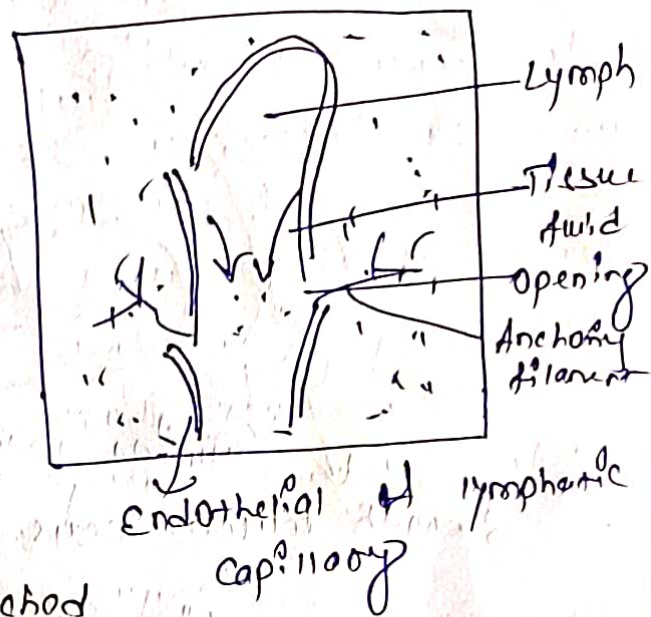 Lymph
Tissue
fluid
opening
Anchoring
filament
Endothelial of lymphatic
capillary
ched